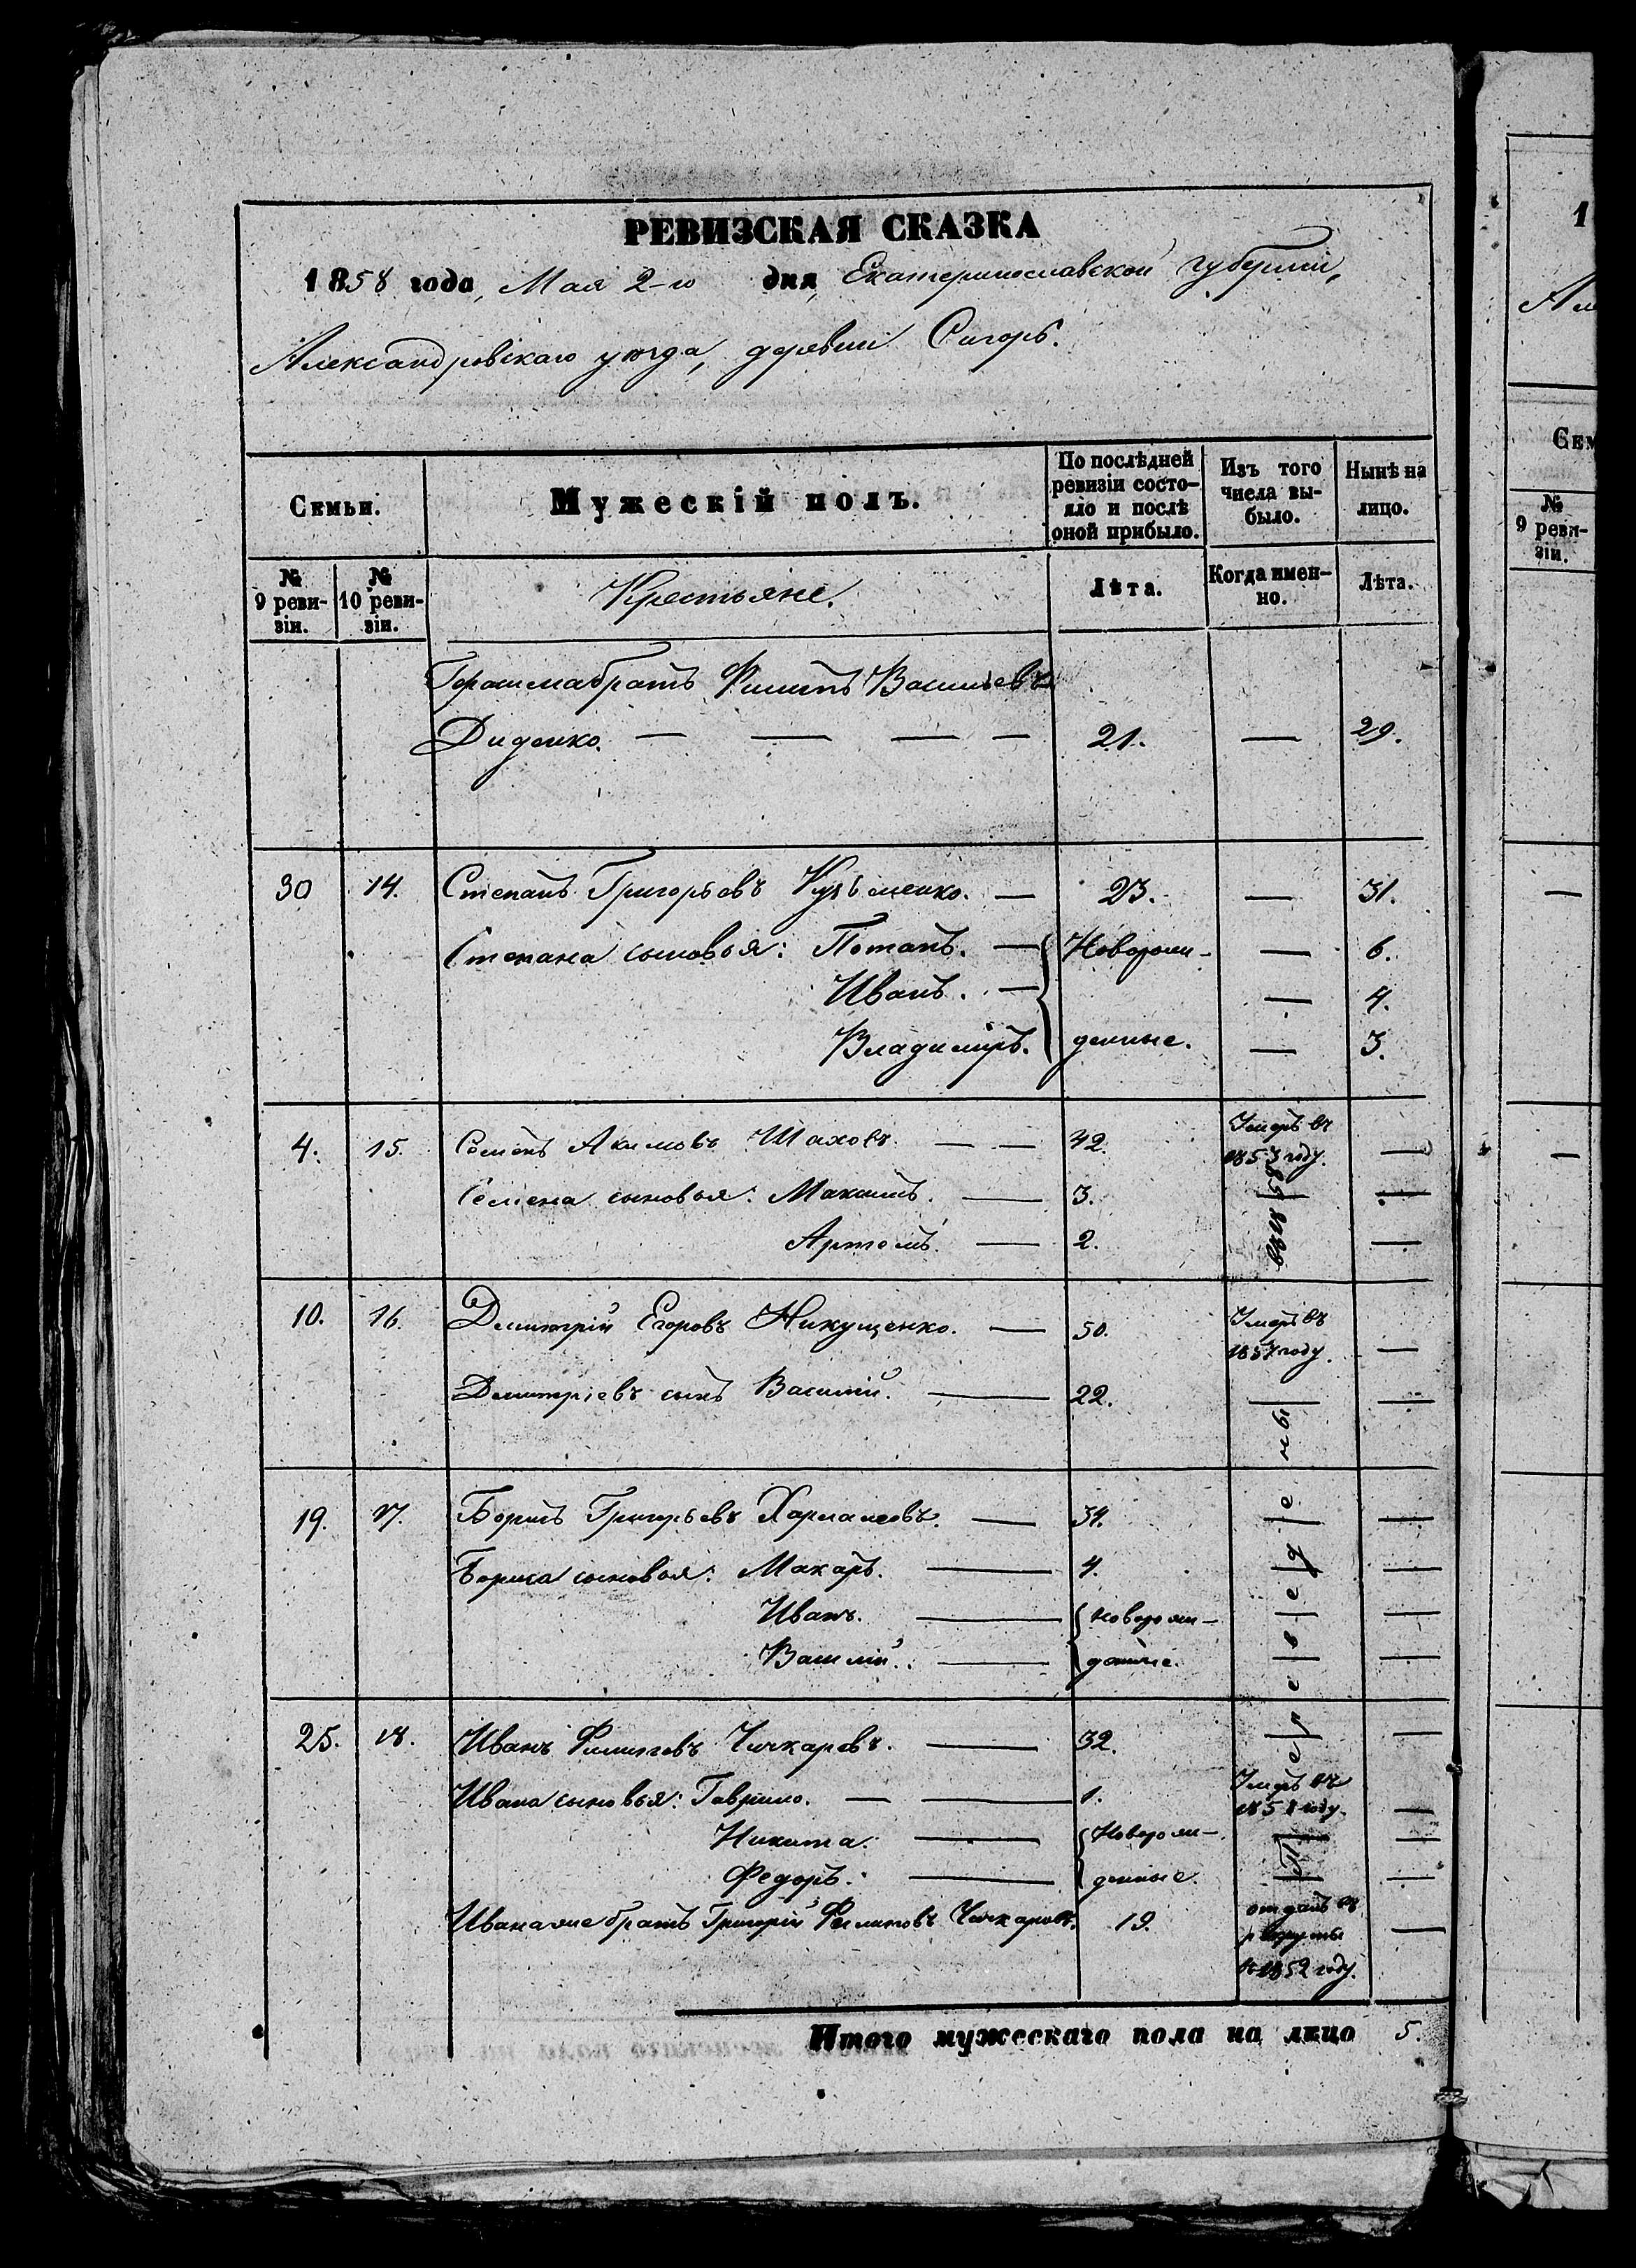 РЕВИЗСКАЯ СКАЗКА
1858 года, Мая 2-го дня, Екатеринославской губерніи,
Александровскаго уѣзда, деревни
Семьи.
Мужескій полъ.
По послѣдней ревизіи состо-яло и послѣ оной прибыло.
Изъ того числа вы-было.
Нынѣ на лицо.
№ 9 реви-зіи.
№ 10 реви-зіи.
Крестьяне.
Лѣта.
Когда имен-но.
Лѣта.
братъ Филипъ Васильевъ
Диденко. — — — — 21. — 29.
30 14. Степанъ Григорьевъ Кузьменко. — 23. — 31.
Степана сыновья: Потапъ. — Новорож- — 6.
Иванъ. — — 4.
Владиміръ. денные. — 3.
4. 15. Семенъ Акимовъ Шаховъ — — 42. Умеръ въ 1853 году. —
Семена сыновья: Максимъ. — 3. — —
Артемъ. — 2. —
10. 16. Дмитрій Егоровъ Никущенко. — 50. Умеръ въ 1857 году. —
Дмитріевъ сынъ Василій. — 22. — —
19. 17. Борисъ Григорьевъ Харламовъ. — 34. — —
Бориса сыновья: Макаръ. — 4. — —
Иванъ. — Новорож- — —
Василій. — денные. — —
25. 18. Иванъ Филиповъ Чичкаревъ. — 32. — —
Ивана сыновья: Гаврило. — — 1. Умеръ въ 1851 году. —
Никита. — Новорож- — —
Федоръ. — денные. — —
Ивана же братъ Григорій Филиповъ Чичкаревъ. 19. отданъ въ рекруты въ 1852 году. —
Переведены
Итого мужескаго пола на лицо 5.
1
Сем
№ 9 реви-зіи.